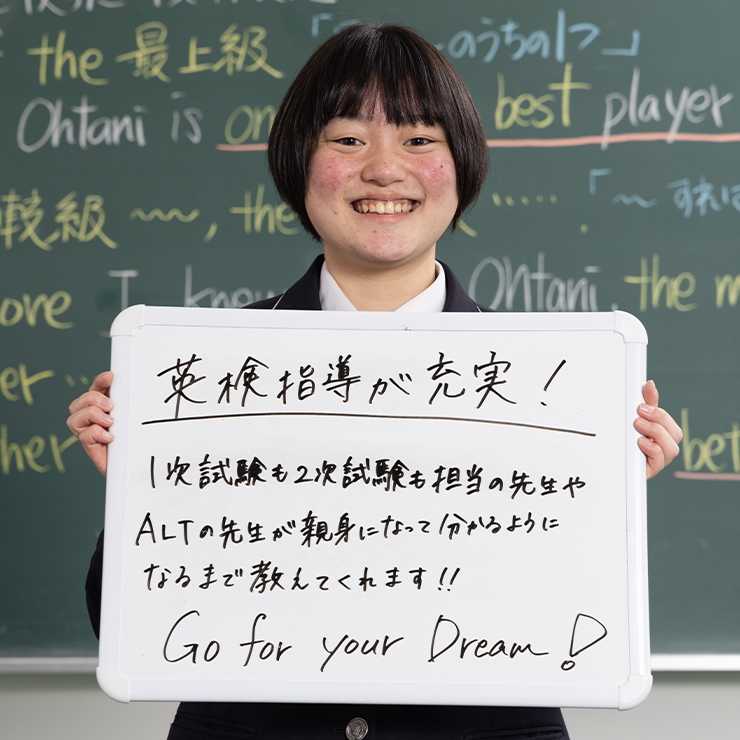 the 最上級 のうちの1つ」
Ohtani is best player
較級 〜〜, the 「〜すれば
I know Ohtani, the m
英検指導が充実!
1次試験も2次試験も担当の先生や
ALTの先生が親身になって分かるように
なるまで教えてくれます!!
Go for your Dream!